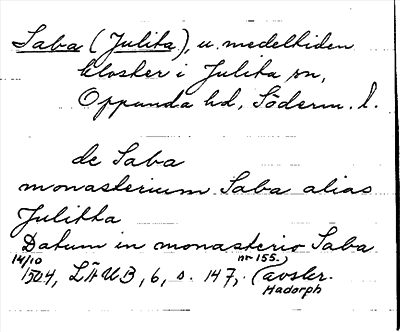 Saba (Julita), u. medeltiden
kloster i Julita sn,
Oppunda hd, Söderm. l.
de Saba
monasterium Saba alias
Julitta
Datum in monasterio Saba
14/10 1504, LÄUB, 6, s. 147, nr 155. (avskr.
Hadorph